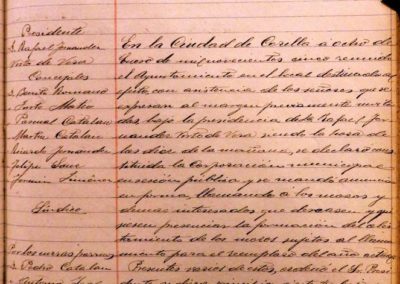 Presidente
D. Rafael Fernandez
Vista de Vera
Concejales
D. Benito Romano
" Justo Mateo
" Pascual Catalan
Martin Catalan
Ricardo Fernandez
Felipe Sanz
Fermin Gimenez
Síndico
Por los curas párrocos
D. Pedro Catalan
En la Ciudad de Corella á ocho de
Enero de mil novecientos cinco reunido
el Ayuntamiento en el local destinado al
con asistencia de los señores que se
expresan al margen previamente
bajo la presidencia de D. Rafael Fer
nandez Vista de Vera siendo la hora de
las diez de la mañana, se declaró cons
tituida la Corporación municipal
en sesión pública y se mandó anunciar
en forma, llamando á los mozos y
demás interesados que deseasen y qui
siesen presenciar la formación del alis
tamiento de los mozos sujetos al llama
miento para el reemplazo del año actual
Presentes varios de estos, ordenó el Sr. Presi